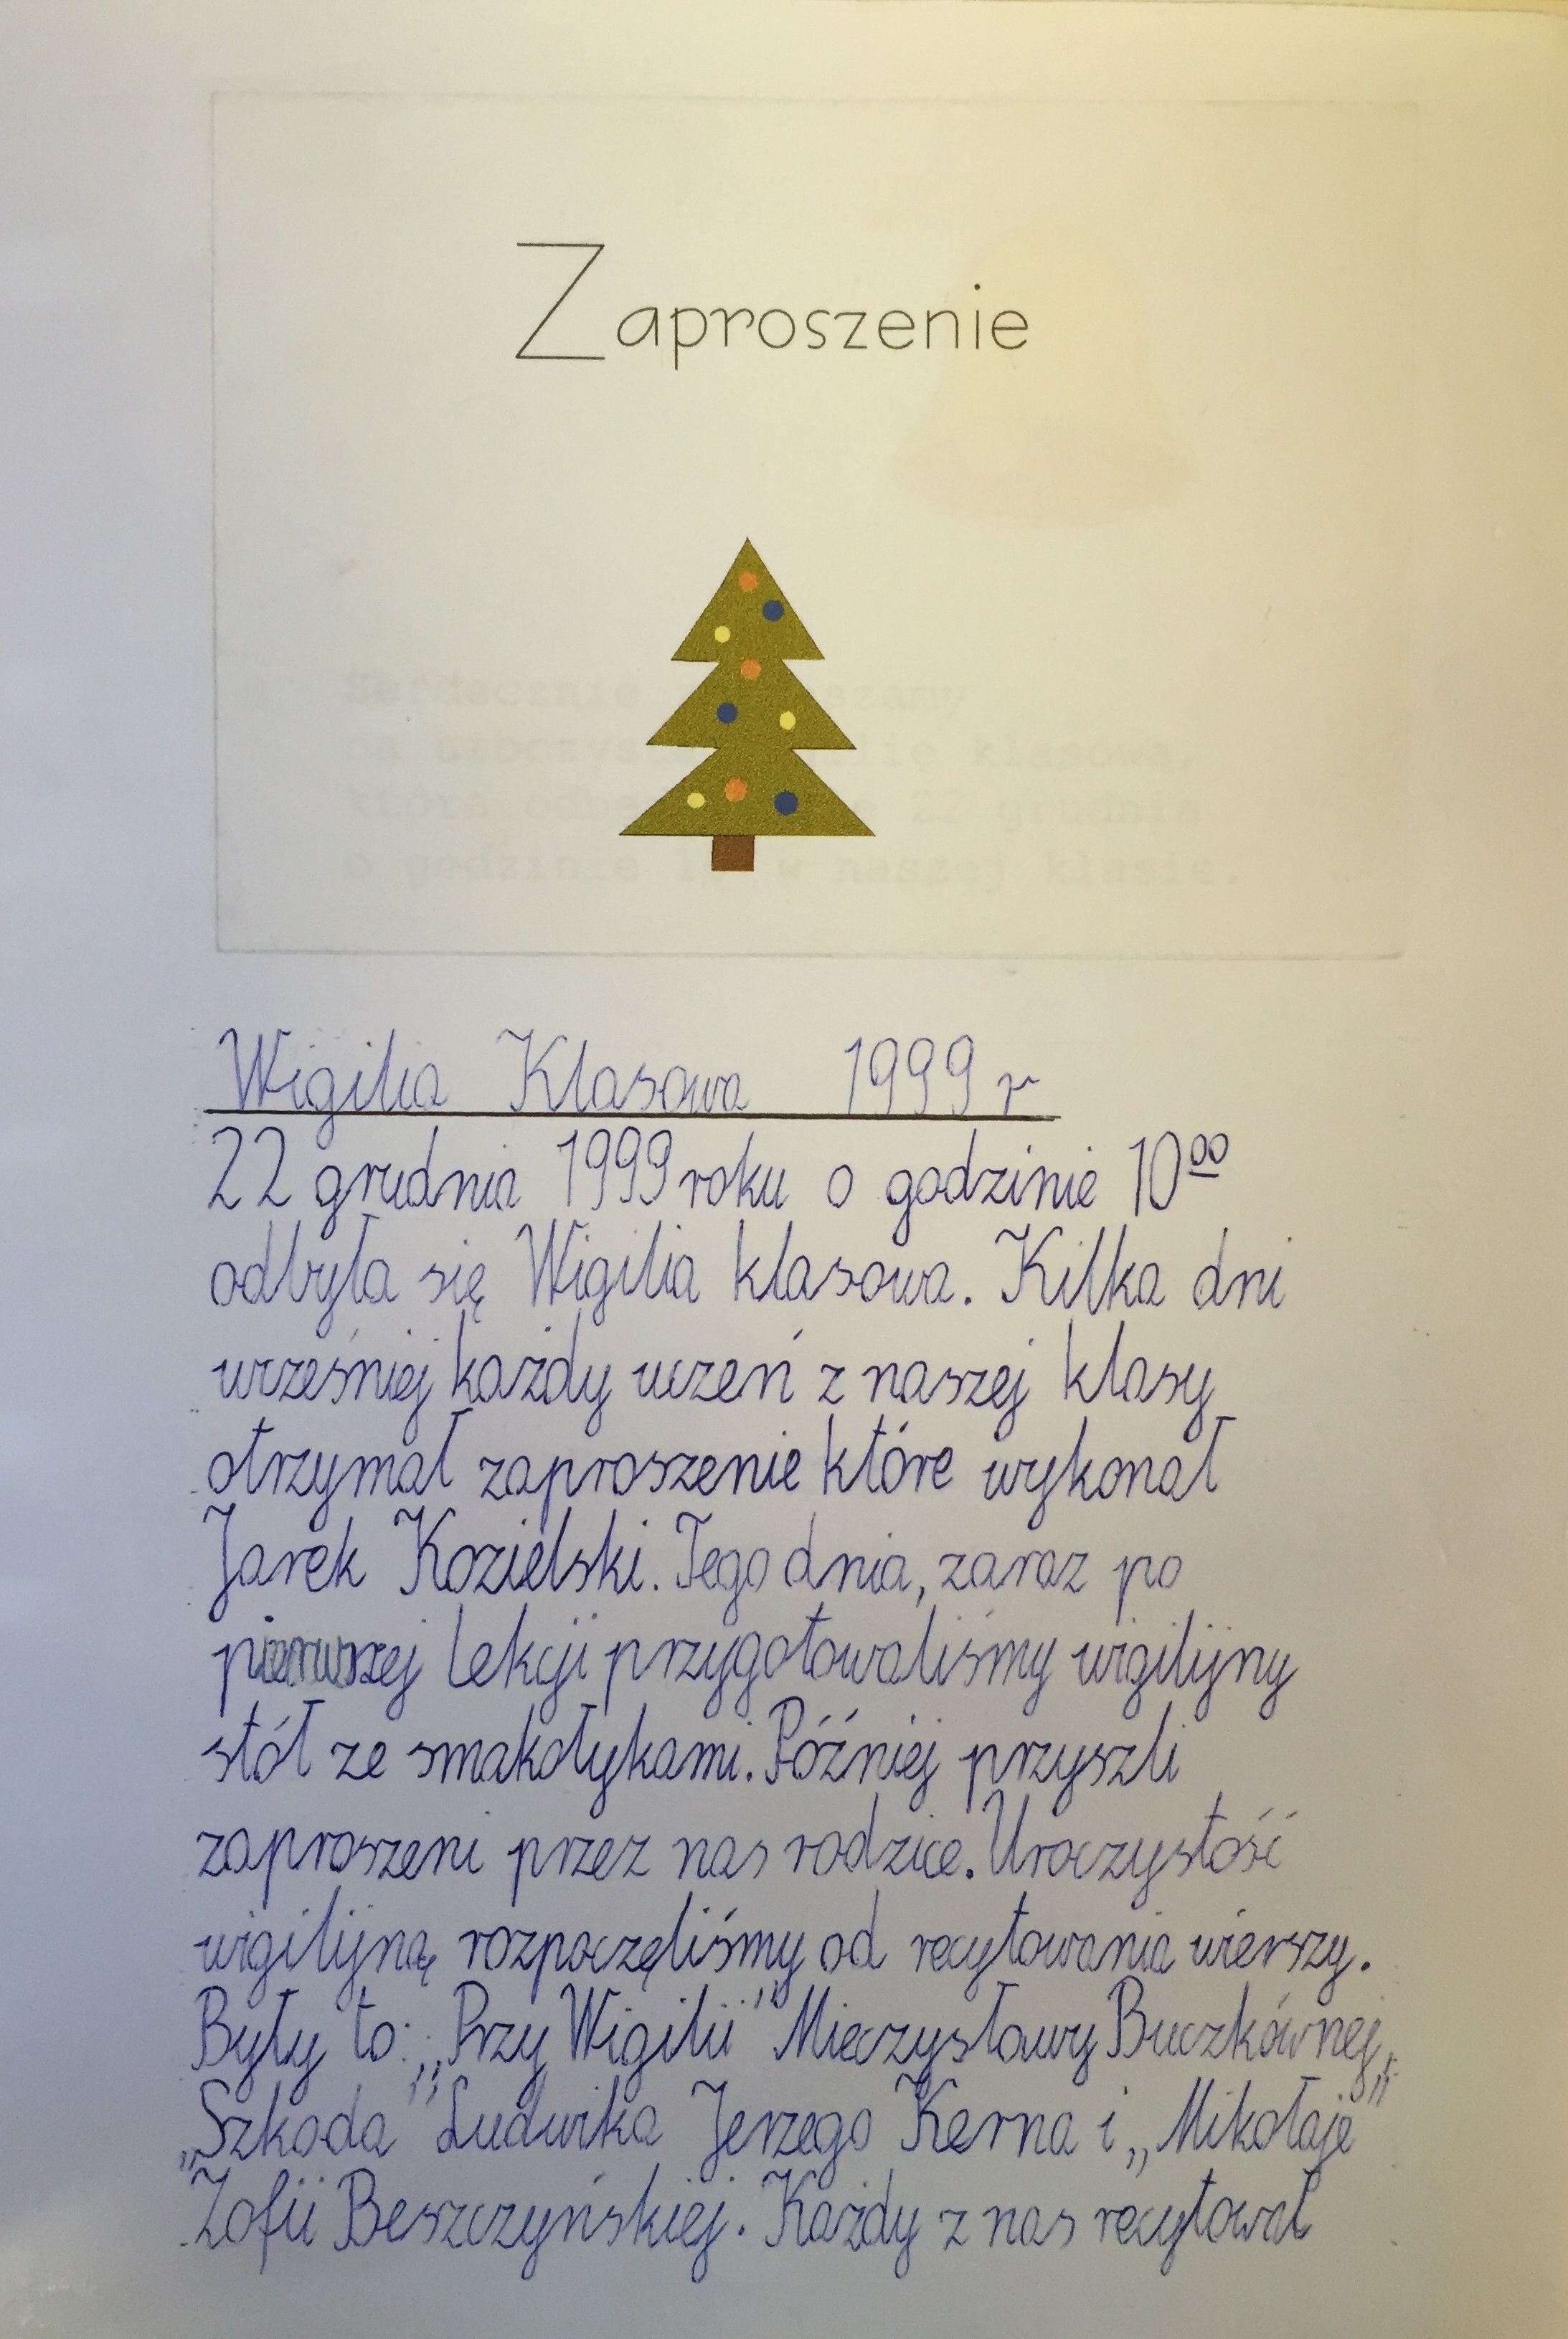 Zaproszenie
Serdecznie szamy
na uroczys lę klasową,
która odbę 22 grudnia
o godzinie 1 w naszej klasie.
Wigilia Klasowa 1999 r
22 grudnia 1999 roku o godzinie 10⁰⁰
odbyła się Wigilia klasowa. Kilka dni
wrześniej każdy uczeń z naszej klasy
otrzymał zaproszenie które wykonał
Jarek Kozielski. Tego dnia, zaraz po
pierwszej lekcji przygotowaliśmy wigilijny
stół ze smakołykami. Później przyszli
zaproszeni przez nas rodzice. Uroczystość
wigilijną rozpoczęliśmy od recytowania wierszy.
Były to: „Przy Wigilii" Mieczysławy Buczkównej,
„Szkoda" Ludwika Jerzego Kerna i „Mikołaje"
Zofii Beszczyńskiej. Każdy z nas recytował